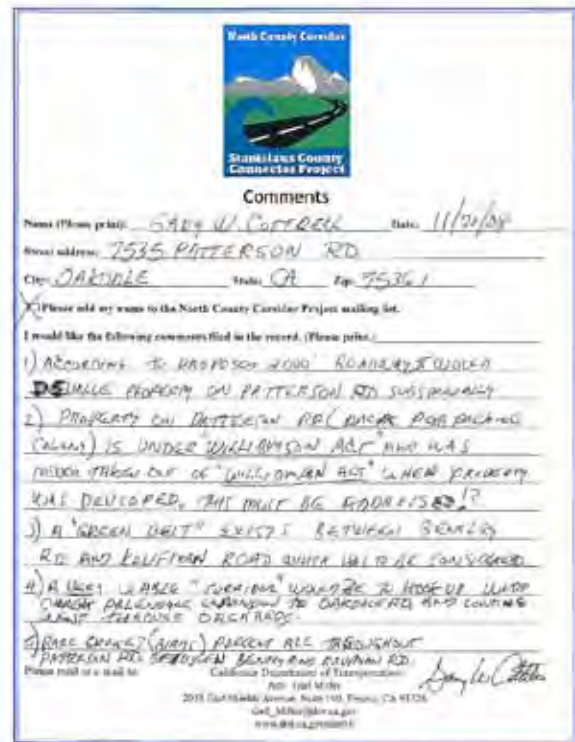 North County Corridor
Stanislaus County
Connector Project
Comments
Name (Please print): GARY W. COTTRELL Date: 11/20/08
Street address: 7535 PATTERSON RD
City: OAKDALE State: CA Zip: 95361
Please add my name to the North County Corridor Project mailing list.
I would like the following comments filed in the record. (Please print.)
1) ACCORDING TO PROPOSED 2000' ROADWAY IT WOULD
DEVALUE PROPERTY ON PATTERSON RD SUBSTANIALLY
2) PROPERTY ON PATTERSON RD
IS UNDER "WILLIAMSON ACT" AND WAS
NEVER TAKEN OUT OF "WILLIAMSON ACT" WHEN PROPERTY
WAS DEVELOPED. THIS MUST BE ADDRESSED!?
3) A "GREEN BELT" EXISTS BETWEEN
RD AND KAUFMAN ROAD WHICH HAS TO BE CONSIDERED
4) A VERY VIABLE "CORRIDOR" WOULD BE TO HOOK UP WITH
EXPANSION TO OAKDALE RD AND CONTINUE
THROUGH ORCHARDS.
5) PRESENT ALL THROUGHOUT
PATTERSON RD BETWEEN AND KAUFMAN RD.
Please mail or e-mail to: California Department of Transportation
Attn: Gail Miller
2015 East Shields Avenue, Suite 100, Fresno, CA 93726
Gail_Miller@dot.ca.gov